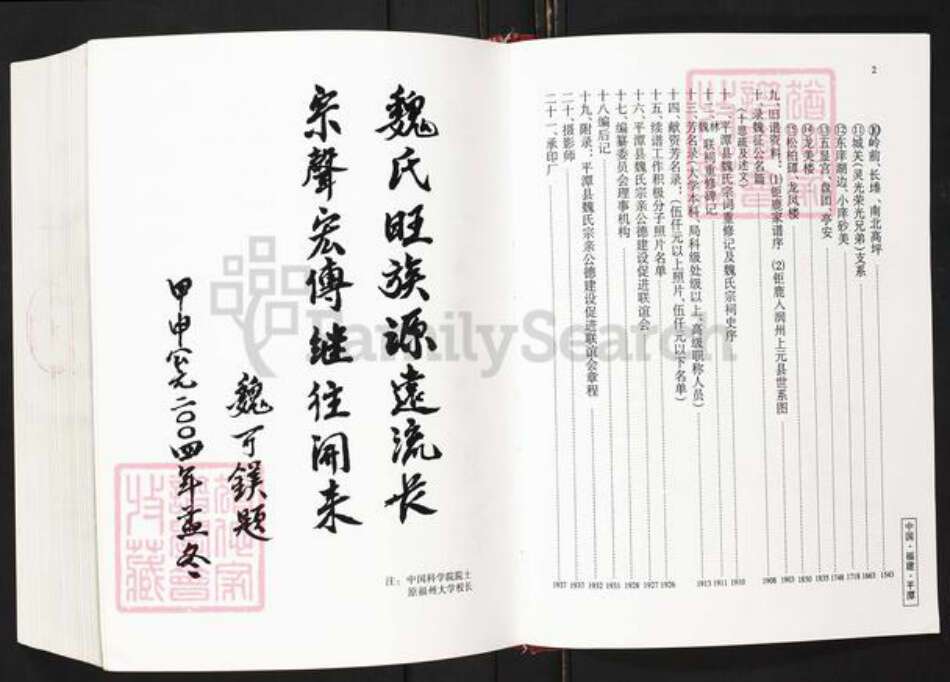 魏氏旺族源遠流长
宗聲宏傳继往開来
魏可鎂题
甲申公元二〇〇四年孟冬
注：中国科学院院士
原福州大学校长
2
⑩岭前、长埔、南北高坪 1543
⑪城关(灵光荣光兄弟)支系 1663
⑫东庠湖边、小庠砂美 1718
⑬五显宫、盘团、亭安 1748
⑭龙美楼 1835
⑮松柏磹、龙凤楼 1850
九、旧谱资料：⑴钜鹿家谱序 ⑵钜鹿人润州上元县世系图 1903
十、录魏征公名篇 1908
(十思疏及述文)
十一、平潭县魏氏宗祠重修记及魏氏宗祠史序 1910
十二、魏林联祠重修碑记 1911
十三、芳名录(大学本科、局科级处级以上、高级职称人员) 1913
十四、献资芳名录：(伍仟元以上照片、伍仟元以下名单) 1926
十五、续谱工作积极分子照片名单 1927
十六、平潭县魏氏宗亲公德建设促进联谊会 1928
十七、编纂委员会理事机构 1931
十八编后记 1932
十九、附录：平潭县魏氏宗亲公德建设促进联谊会章程 1933
二十、摄影师 1937
二十一、承印厂
中国·福建·平潭
FamilySearch